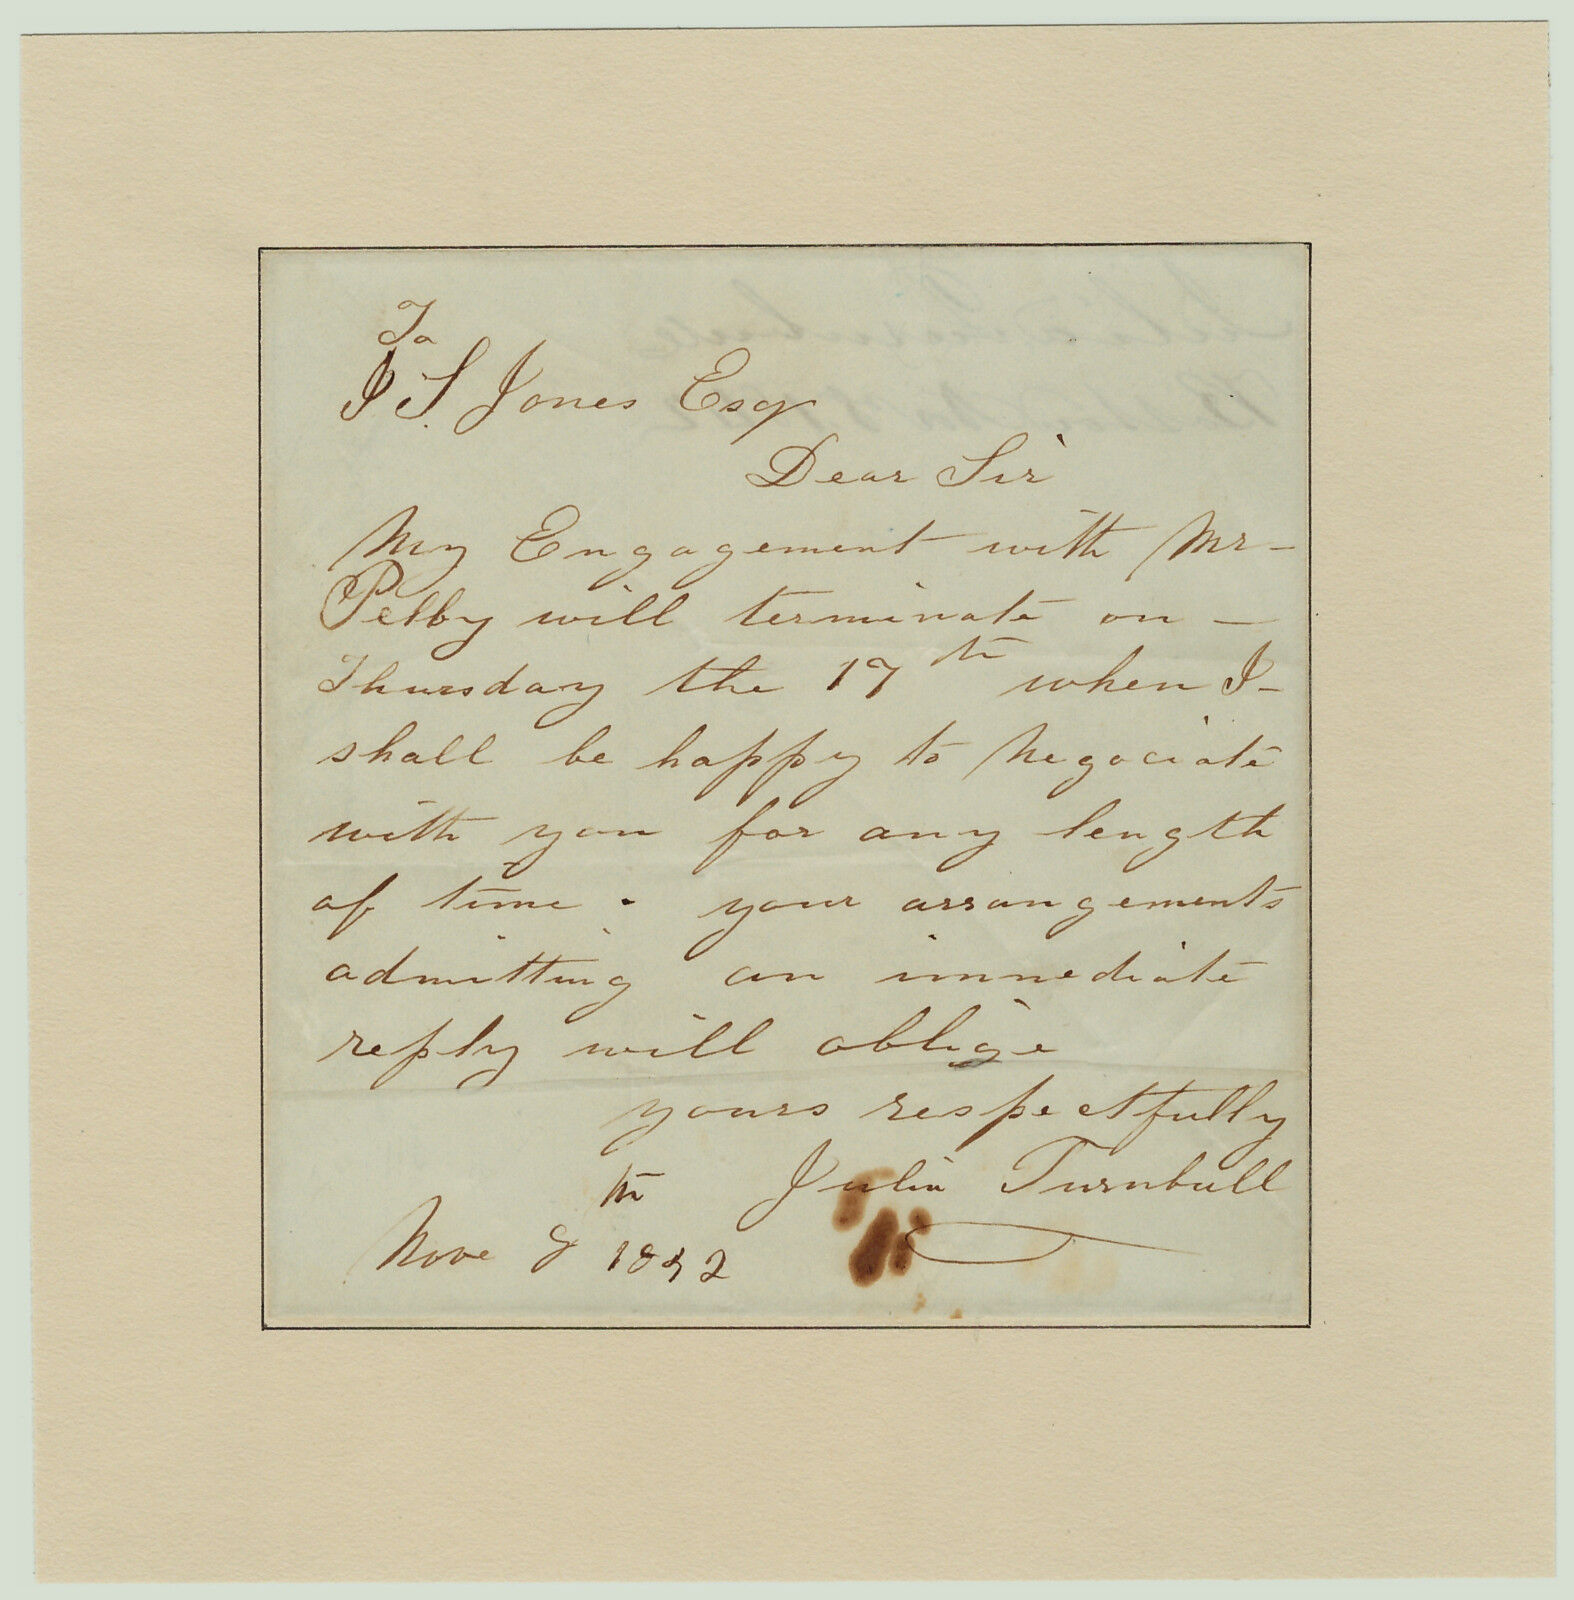 To
J S. Jones Esqr
Dear Sir
My Engagement with Mr-
Pelby will terminate on -
Thursday the 17th when I-
shall be happy to Negociate
with you for any length
of time. your arrangements
admitting an immediate
reply will oblige
yours respectfully
Julia Turnbull
Nove 8th 1842